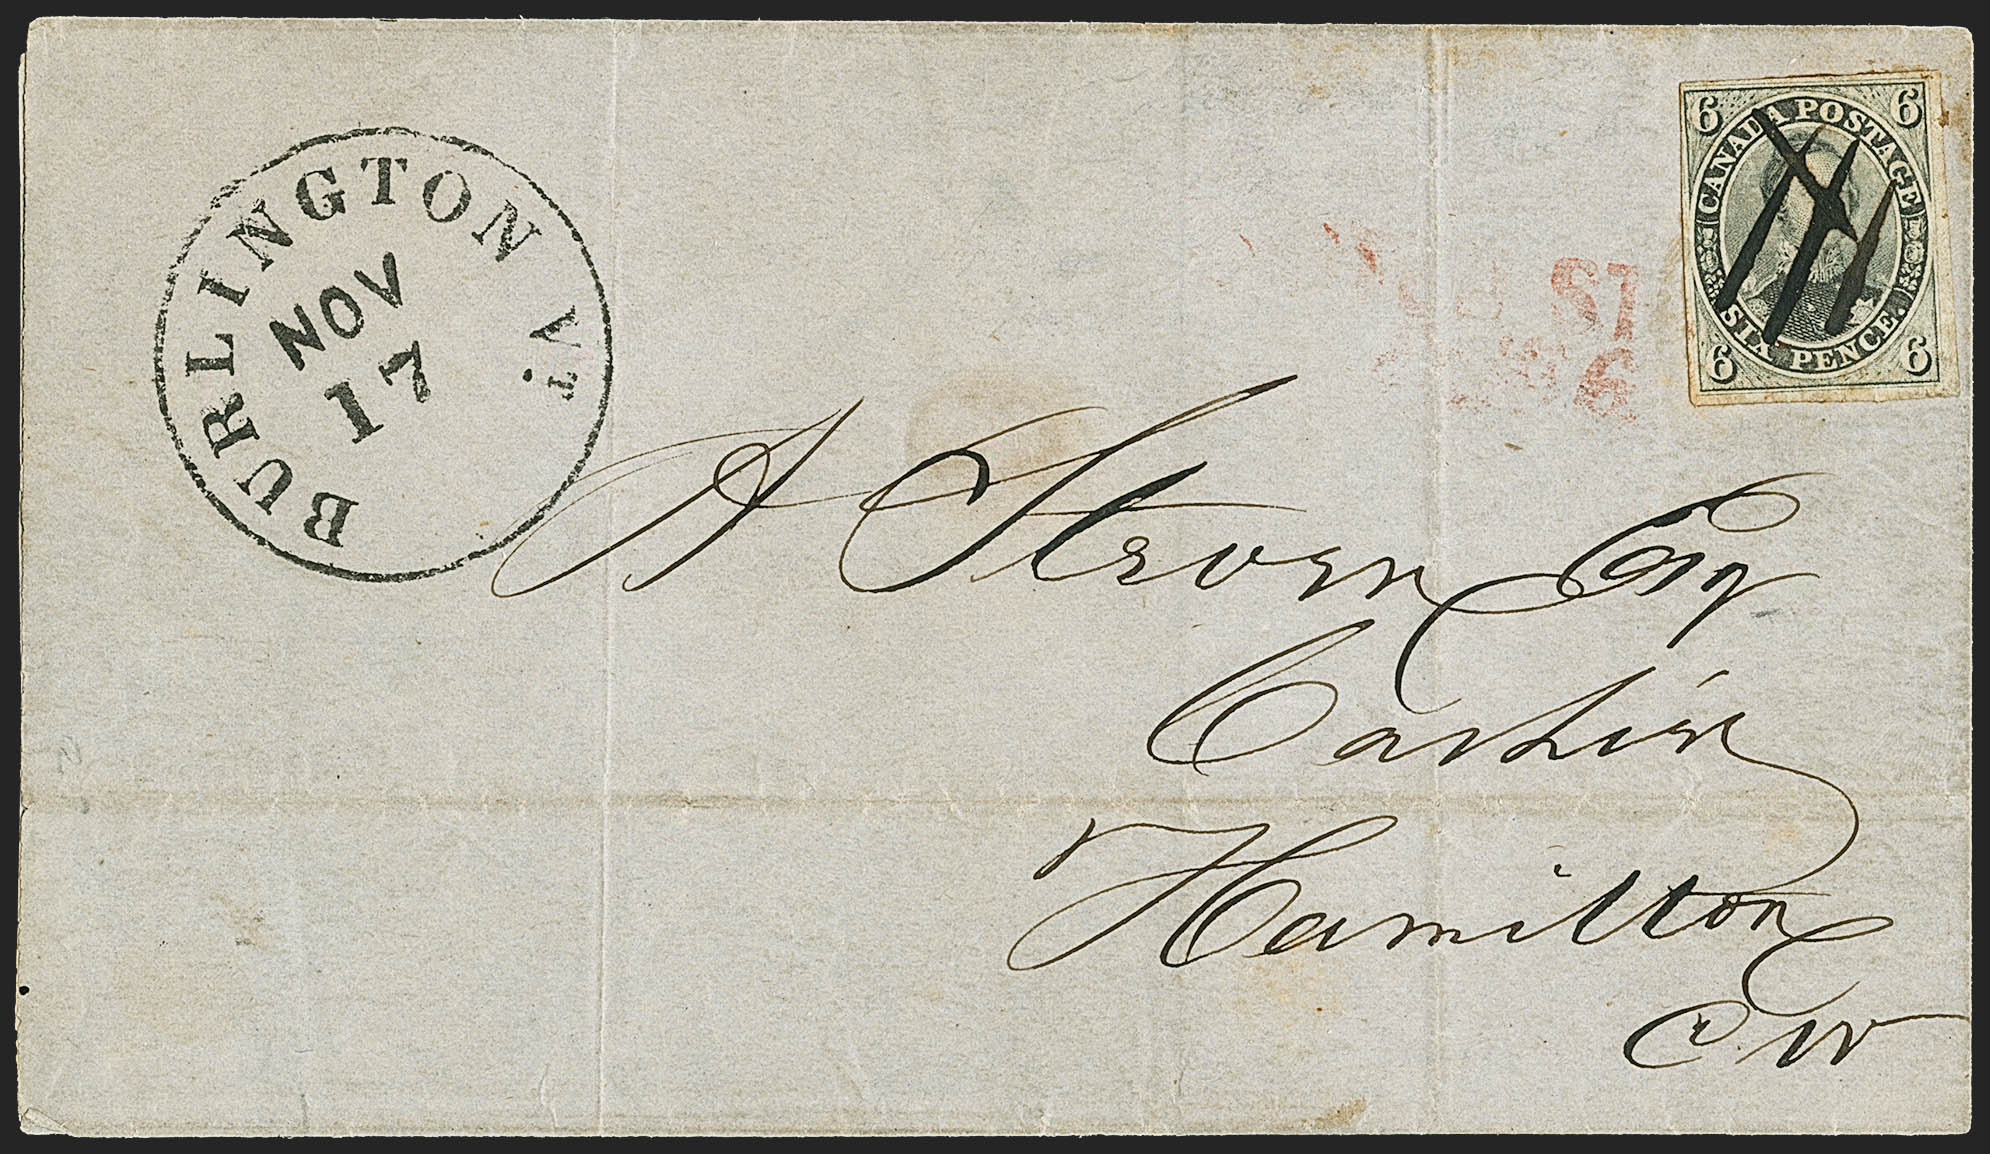 BURLINGTON Vt.
NOV
17
6 6
CANADA POSTAGE
SIX PENCE.
6 6
ST
6
A Steven Esq
Cashier
Hamilton
CW